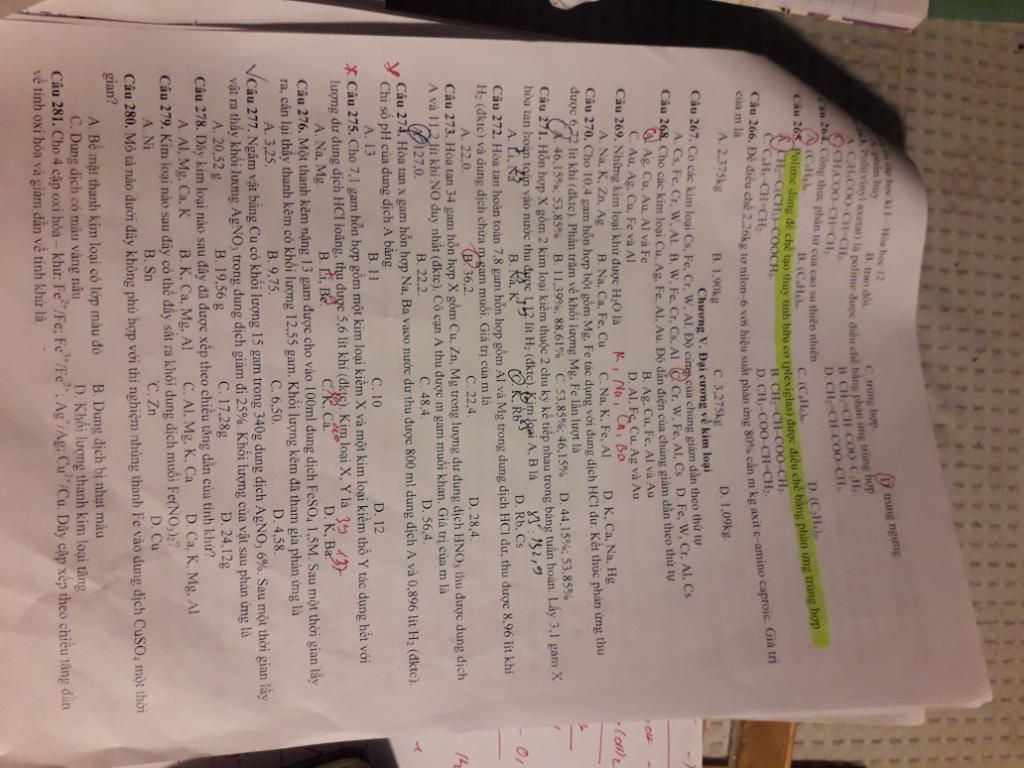 học kì I - Hóa học 12
phân hủy. C. trùng hợp
D trùng ngưng.
Câu 264. Poli(vinyl axetat) là polime được điều chế bằng phản ứng trùng hợp
A. C₂H₅COO-CH=CH₂.
C. CH₃COO-CH=CH₂.
Công thức phân tử của cao su thiên nhiên
A. (C₅H₈)ₙ. B. (C₄H₈)ₙ. C. (C₄H₆)ₙ. D. (C₂H₄)ₙ.
Câu 265. Polime dùng để chế tạo thuỷ tinh hữu cơ (plexiglas) được điều chế bằng phản ứng trùng hợp
A. CH₂=C(CH₃)COOCH₃. B. CH₂=CHCOOCH₃.
C. C₆H₅-CH=CH₂. D. CH₃-COO-CH=CH₂.
Câu 266. Để điều chế 2,26kg tơ nilon-6 với hiệu suất phản ứng 80% cần m kg axit ε-amino caproic. Giá trị
của m là
A. 2,375kg B. 1,90kg C. 3,275kg D. 1,09kg.
Chương V. Đại cương về kim loại
Câu 267. Có các kim loại Cs, Fe, Cr, W, Al. Độ cứng của chúng giảm dần theo thứ tự
A. Cs, Fe, Cr, W, Al B. W, Fe, Cr, Cs, Al C. Cr, W, Fe, Al, Cs D. Fe, W, Cr, Al, Cs
Câu 268. Cho các kim loại Cu, Ag, Fe, Al, Au. Độ dẫn điện của chúng giảm dần theo thứ tự
A. Ag, Cu, Au, Al và Fe B. Ag, Cu, Fe, Al và Au
C. Au, Ag, Cu, Fe và Al D. Al, Fe, Cu, Ag và Au
Câu 269. Những kim loại khử được H₂O là K, Na, Ca, Ba
A. Na, K, Zn, Ag B. Na, Ca, Fe, Cu C. Na, K, Fe, Al D. K, Ca, Na, Hg
Câu 270. Cho 10,4 gam hỗn hợp bột gồm Mg, Fe tác dụng với dung dịch HCl dư. Kết thúc phản ứng thu
được 6,72 lít khí (đktc). Phần trăm về khối lượng Mg, Fe lần lượt là
A. 46,15%; 53,85% B. 11,39%; 88,61% C. 53,85%; 46,15% D. 44,15%; 53,85%
Câu 271. Hỗn hợp X gồm 2 kim loại kiềm thuộc 2 chu kỳ kế tiếp nhau trong bảng tuần hoàn. Lấy 3,1 gam X
hòa tan hoàn toàn vào nước thu được 1,12 lít H₂ (đktc). Kim loại A, B là
A. Li, Na B. Na, K C. K, Rb D. Rb, Cs
Câu 272. Hòa tan hoàn toàn 7,8 gam hỗn hợp gồm Al và Mg trong dung dịch HCl dư, thu được 8,96 lít khí
H₂ (đktc) và dung dịch chứa m gam muối. Giá trị của m là
A. 22,0. B. 36,2. C. 22,4. D. 28,4.
Câu 273. Hòa tan 34 gam hỗn hợp X gồm Cu, Zn, Mg trong lượng dư dung dịch HNO₃ thu được dung dịch
A và 11,2 lít khí NO duy nhất (đktc). Cô cạn A thu được m gam muối khan. Giá trị của m là
A. 127,0. B. 22,2. C. 48,4. D. 56,4.
Câu 274. Hòa tan x gam hỗn hợp Na, Ba vào nước dư thu được 800 ml dung dịch A và 0,896 lít H₂ (đktc).
Chỉ số pH của dung dịch A bằng
A. 13 B. 11 C. 10 D. 12
Câu 275. Cho 7,1 gam hỗn hợp gồm một kim loại kiềm X và một kim loại kiềm thổ Y tác dụng hết với
lượng dư dung dịch HCl loãng, thu được 5,6 lít khí (đktc). Kim loại X, Y là
A. Na, Mg. B. Li, Be. C. K, Ca. D. K, Ba.
Câu 276. Một thanh kẽm nặng 13 gam được cho vào 100ml dung dịch FeSO₄ 1,5M. Sau một thời gian lấy
ra, cân lại thấy thanh kẽm có khối lượng 12,55 gam. Khối lượng kẽm đã tham gia phản ứng là
A. 3,25. B. 9,75. C. 6,50. D. 4,58.
Câu 277. Ngâm vật bằng Cu có khối lượng 15 gam trong 340g dung dịch AgNO₃ 6%. Sau một thời gian lấy
vật ra thấy khối lượng AgNO₃ trong dung dịch giảm đi 25%. Khối lượng của vật sau phản ứng là
A. 20,52 g B. 19,56 g C. 17,28g D. 24,12g
Câu 278. Dãy kim loại nào sau đây đã được xếp theo chiều tăng dần của tính khử?
A. Al, Mg, Ca, K B. K, Ca, Mg, Al C. Al, Mg, K, Ca D. Ca, K, Mg, Al
Câu 279. Kim loại nào sau đây có thể đẩy sắt ra khỏi dung dịch muối Fe(NO₃)₂?
A. Ni B. Sn C. Zn D. Cu
Câu 280. Mô tả nào dưới đây không phù hợp với thí nghiệm nhúng thanh Fe vào dung dịch CuSO₄ một thời
gian?
A. Bề mặt thanh kim loại có lớp màu đỏ B. Dung dịch bị nhạt màu
C. Dung dịch có màu vàng nâu D. Khối lượng thanh kim loại tăng
Câu 281. Cho 4 cặp oxi hóa – khử: Fe²⁺/Fe; Fe³⁺/Fe²⁺; Ag⁺/Ag; Cu²⁺/Cu. Dãy cặp xếp theo chiều tăng dần
về tính oxi hóa và giảm dần về tính khử là